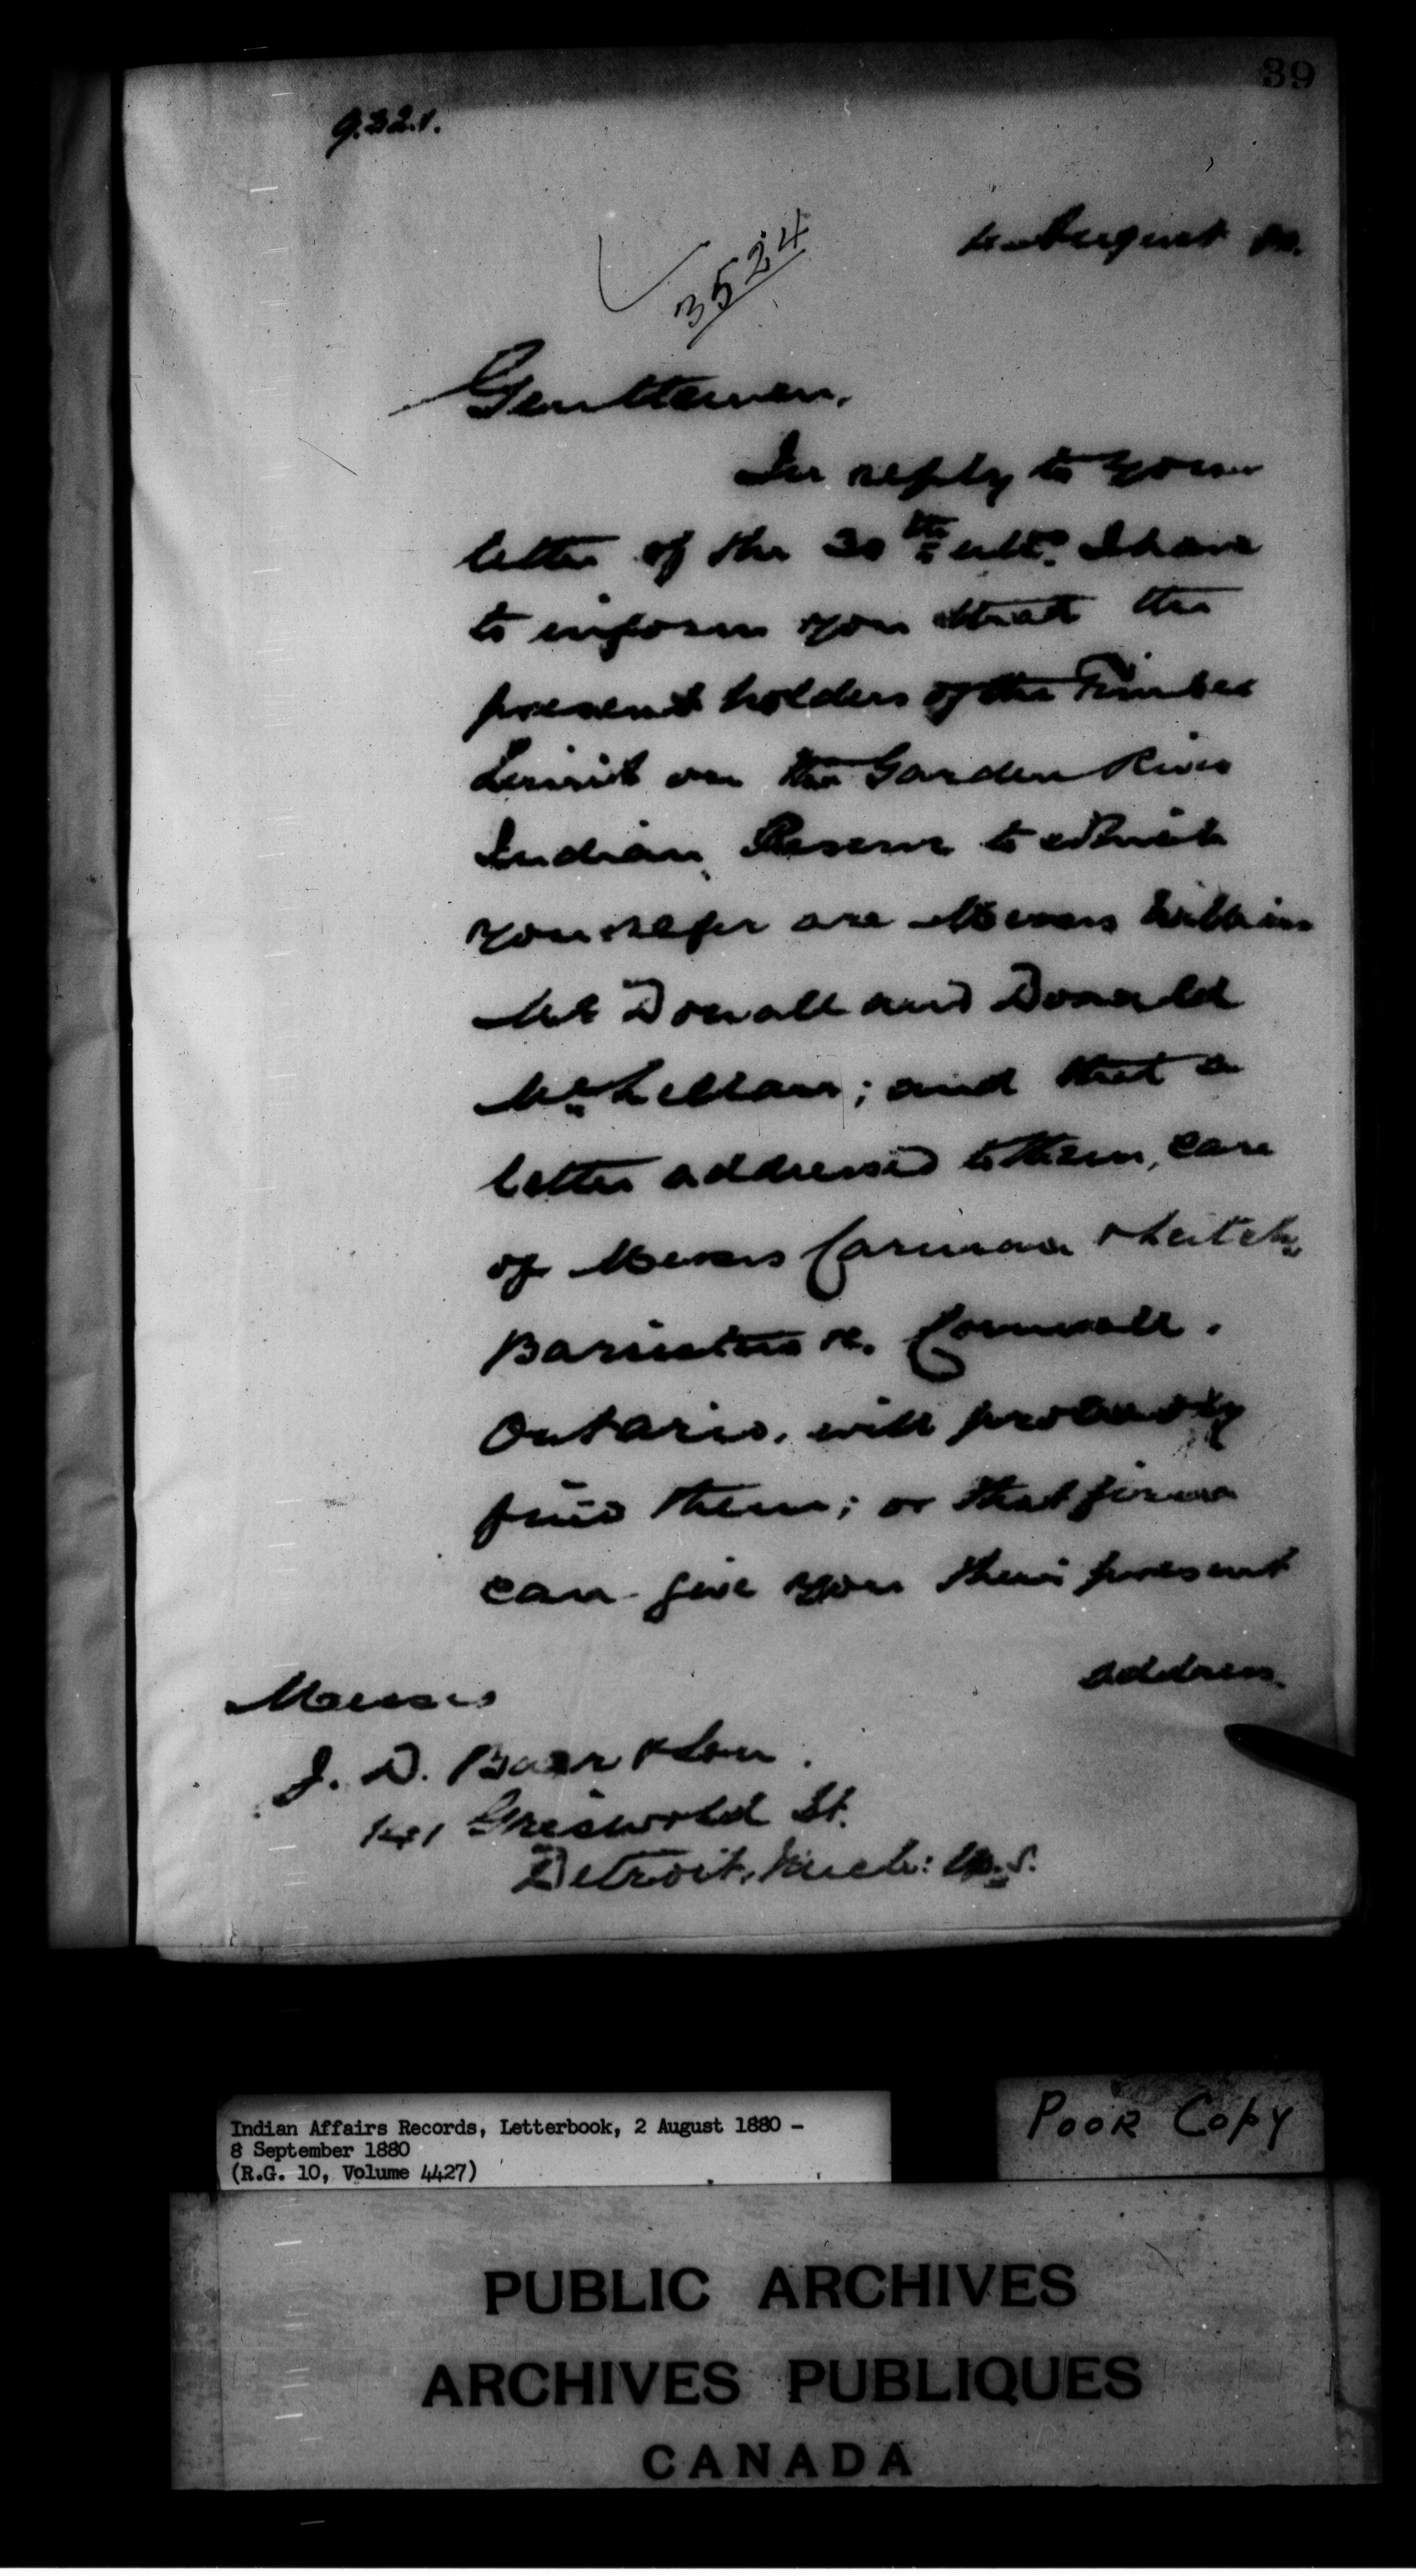 39
9.321.
August 80.
3524
Gentlemen,
In reply to your
letter of the 30th ulto. I have
to inform you that the
present holders of the Timber
Limit on the Garden River
Indian Reserve to which
you refer are Messrs William
McDonall and Donald
McLellan; and that a
letter addressed to them, care
of Messrs Carman & Leitch,
Barristers &c. Cornwall.
Ontario. will probably
find them; or that firm
can give you their present
address.
Messrs
J. D. Baer & Son.
141 Griswold St.
Detroit, Mich: U.S.
Indian Affairs Records, Letterbook, 2 August 1880 -
8 September 1880
(R.G. 10, Volume 4427)
POOR COPY
PUBLIC ARCHIVES
ARCHIVES PUBLIQUES
CANADA